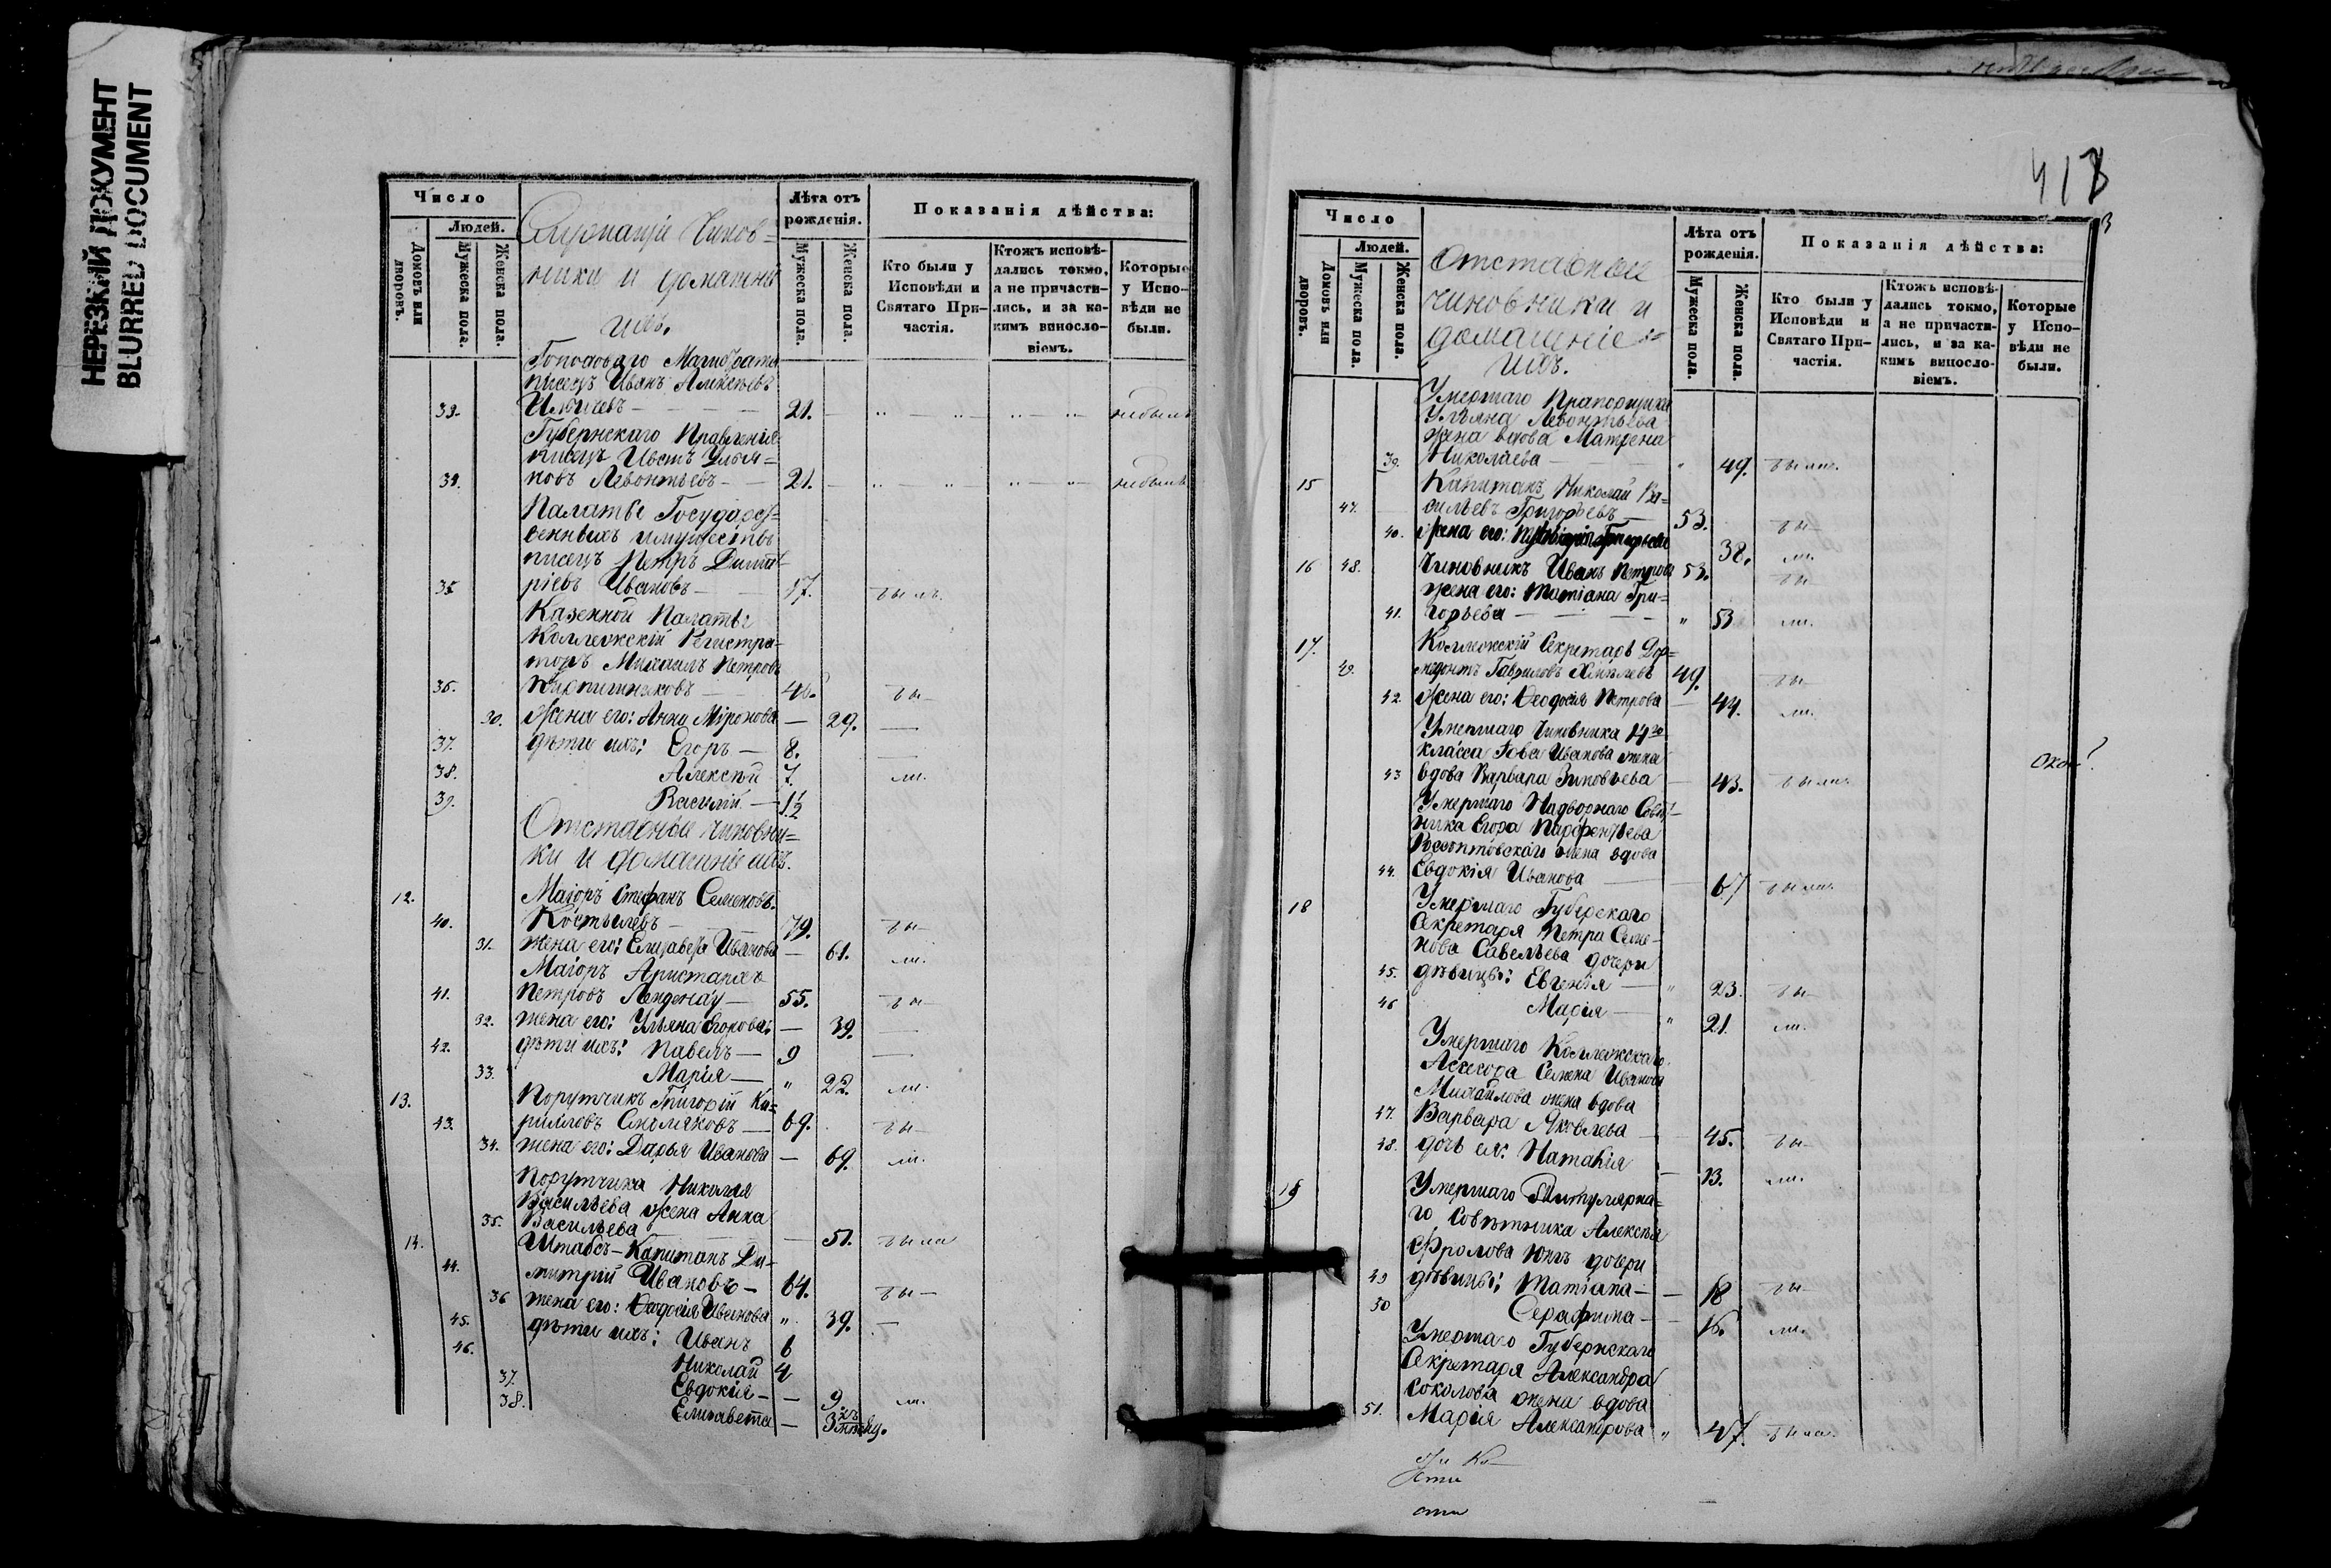 НЕРЕЗКИЙ ДОКУМЕНТ
BLURRED DOCUMENT
Число
Людей.
Домовъ или дворовъ.
Мужеска пола.
Женска пола.
Служащіе Чинов=
ники и домашніе
ихъ.
Лѣта отъ рожденія.
Мужеска пола.
Женска пола.
Показанія дѣйства:
Кто были у Исповѣди и Святаго Причастія.
Ктожъ исповѣдались токмо, а не причастились, и за какимъ винословіемъ.
Которые у Исповѣди не были.
Городоваго Магистрата
писецъ Иванъ Алексѣевъ
33. Ильичевъ — 21. небылъ
Губернскаго Правленія
писецъ Улья=
34. новъ Левонтьевъ — 21. небылъ
Палаты Государст=
венныхъ имуществъ
писецъ Петръ Димит=
35 ріевъ Ивановъ — 17. былъ.
Казенной Палаты
Коллежскій Регистра=
торъ Михаилъ Петровъ
36. Кирпишниковъ — 40. бы—
30. Жена его: Анна Міронова — 29. —
37. дѣти ихъ: Егоръ — 8. —
38. Алексѣй 7 ли.
39. Василій — 1½
Отставные чиновни=
ки и домашніе ихъ.
12. Маіоръ Стефанъ Семеновъ
40. Костылевъ — 79. бы—
31. жена его: Елизавета Иванова — 61. ли.
Маіоръ Аристархъ
41. Петровъ — 55. бы—
32. жена его: Ульяна Егорова — 39. —
42. дѣти ихъ: Павелъ — 9 —
33. Марія — " 22. ли.
13. Порутчикъ Григорій Ки=
43. рилловъ — 69. бы—
34. жена его: Дарья Иванова — 69. ли.
Порутчика Николая
Васильева жена Анна
35. Васильева — 51. была
14. Штабсъ-Капитанъ Ди=
44. митрій Ивановъ — 64. бы—
36 жена его: Ѳеодосія Иванова " 39. —
45. дѣти ихъ: Иванъ 6
46. Николай 4
37. Евдокія — — 9. ли.
38. Елизавета —
413
Число
Людей.
Домовъ или дворовъ.
Мужеска пола.
Женска пола.
Отставные
чиновники и
домашніе
ихъ.
Лѣта отъ рожденія.
Мужеска пола.
Женска пола.
Показанія дѣйства:
Кто были у Исповѣди и Святаго Причастія.
Ктожъ исповѣдались токмо, а не причастились, и за какимъ винословіемъ.
Которые у Исповѣди не были.
Умершаго Прапорщика
Ульяна Левонтьева
жена вдова Матрена
39. Николаева — " 49.
15 Капитанъ Николай Ва=
47. сильевъ Григорьевъ — 53. бы
40. Жена его: 38. ли.
16 48. Чиновникъ Иванъ Петровъ 53. бы
жена его: Татіана Гри=
41. горьева — " 53 ли.
17. Коллежскій Секретарь Дор=
49. медонтъ Гавриловъ 49. бы
42. Жена его: Ѳеодосія Петрова — 44. ли.
Умершаго Чиновника 14го
класса Іова Иванова жена
43 вдова Варвара Зиновьева — 43.
Умершаго Надворнаго Совѣт=
ника Егора Парфентьева
жена вдова
44. Евдокія Иванова — 67
18 Умершаго Губерскаго
Секретаря Петра Семе=
нова Савельева дочери
45. дѣвицы: Евгенія — " 23. бы—
46 Марія — " 21. ли.
Умершаго Коллежскаго
Асессора Семена Иванова
Михайлова жена вдова
47. Варвара Яковлева — 45. бы—
48. дочь ея: Наталія — 13. ли.
19 Умершаго Титулярна=
го Совѣтника Алексѣя
Фролова дочери
49 дѣвицы: Татіана — — 18 бы—
50 Серафима — 16. ли.
Умершаго Губернскаго
Секретаря Александра
Соколова жена вдова
51. Марія Александрова " 47. была.